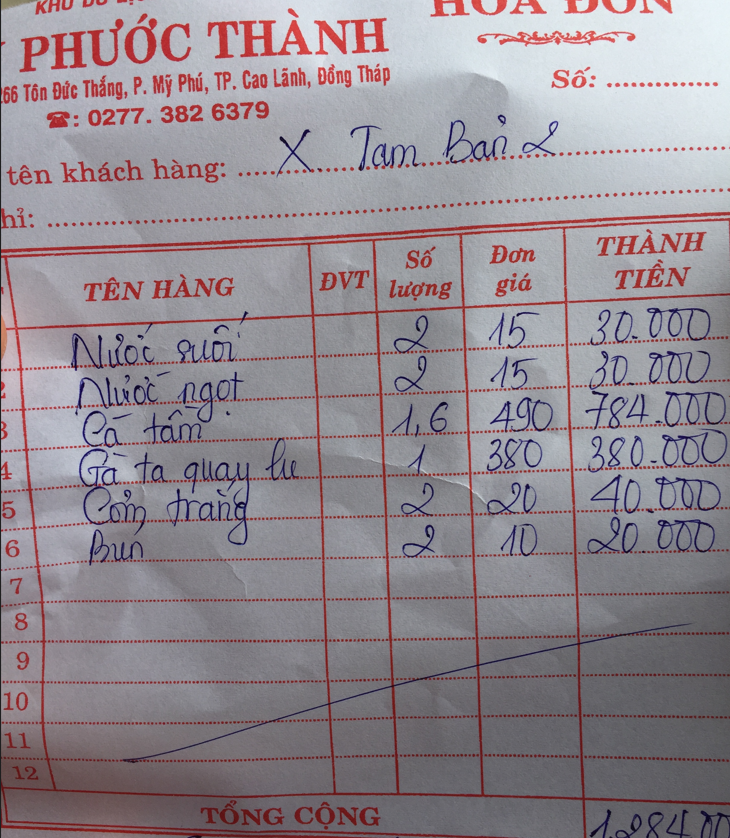 KHU DU LỊ
HÓA ĐƠN
PHƯỚC THÀNH
266 Tôn Đức Thắng, P. Mỹ Phú, TP. Cao Lãnh, Đồng Tháp
Số: ..............
☎: 0277. 382 6379
tên khách hàng: X Tam Bản 2
hỉ:
TÊN HÀNG ĐVT Số lượng Đơn giá THÀNH TIỀN
Nước suối 2 15 30.000
2 Nước ngọt 2 15 30.000
3 Cá tầm 1,6 490 784.000
4 Gà ta quay lu 1 380 380.000
5 Cơm trắng 2 20 40.000
6 Bún 2 10 20.000
7
8
9
10
11
12
TỔNG CỘNG 1.284.00